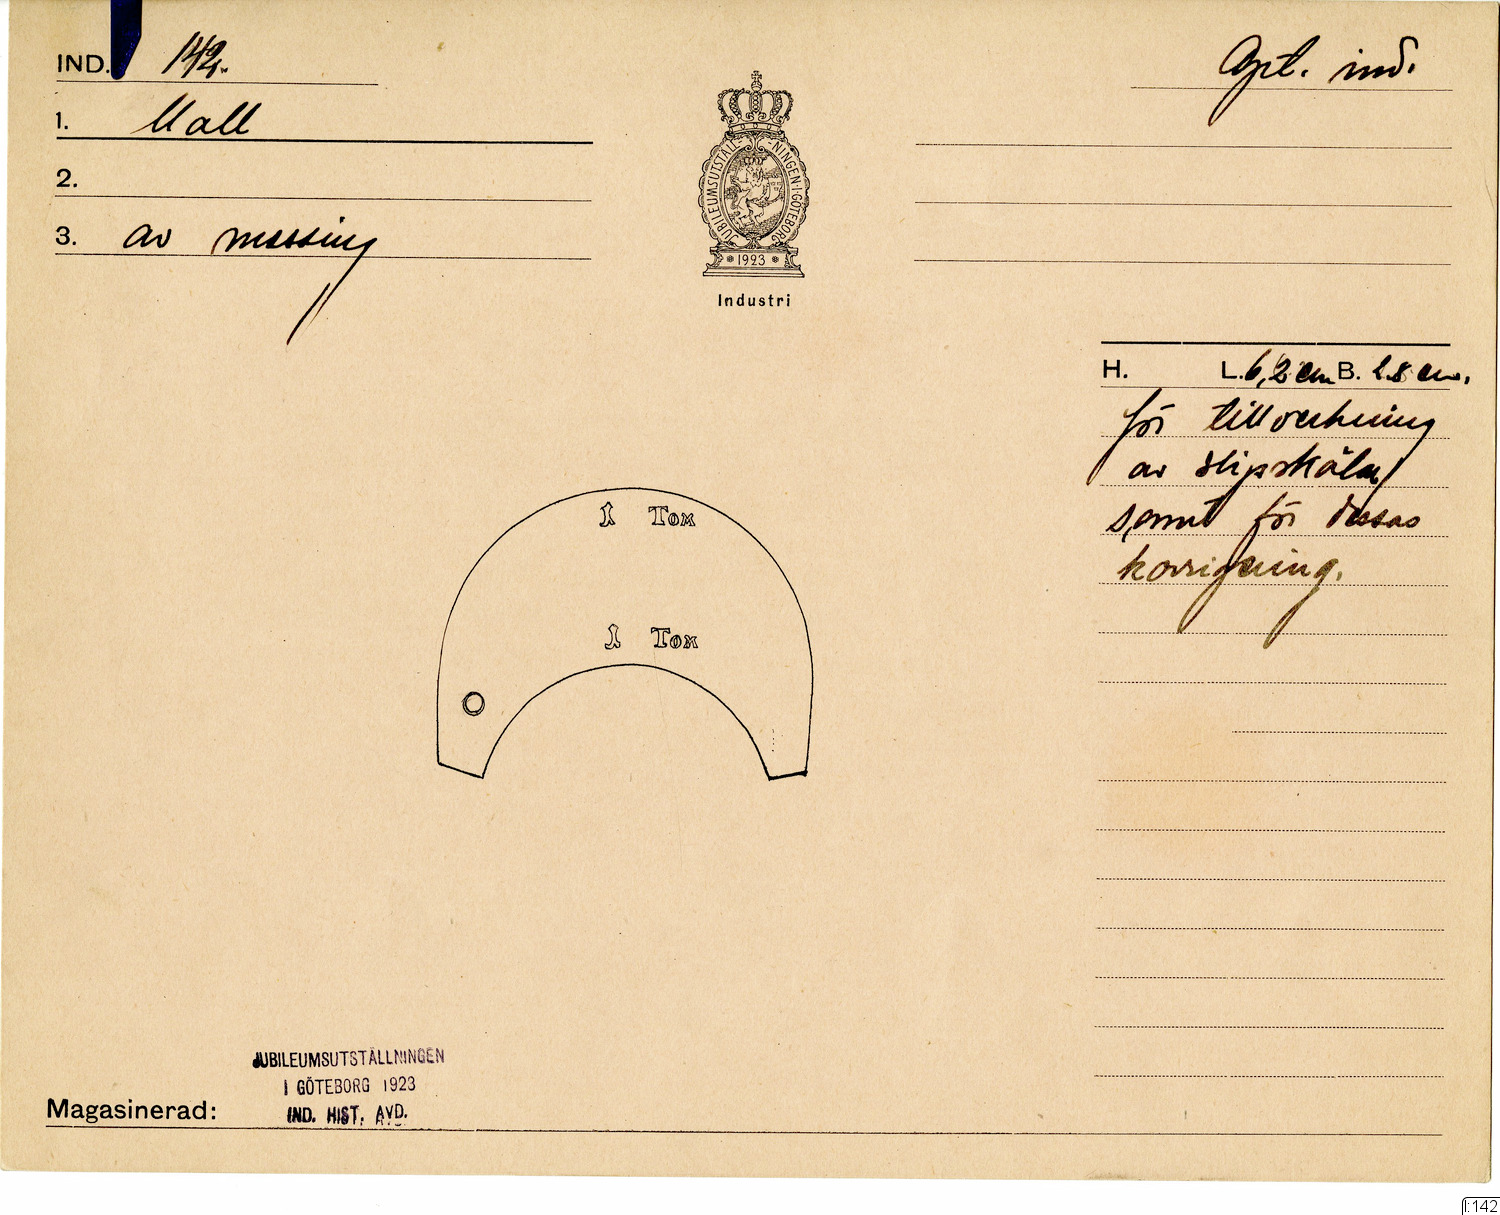 IND. 142.
Opt. ind.
1. Mall
2.
3. av messing
JUBILEUMSUTSTÄLL-NINGEN·I·GÖTEBORG
1923
Industri
H. L. 6,2 cm B. 2.8 cm.
för tillverkning
av slipskålar
samt för dessas
korrigering.
1 Tom
1 Tom
JUBILEUMSUTSTÄLLNINGEN
I GÖTEBORG 1923
IND. HIST. AVD.
Magasinerad:
I:142